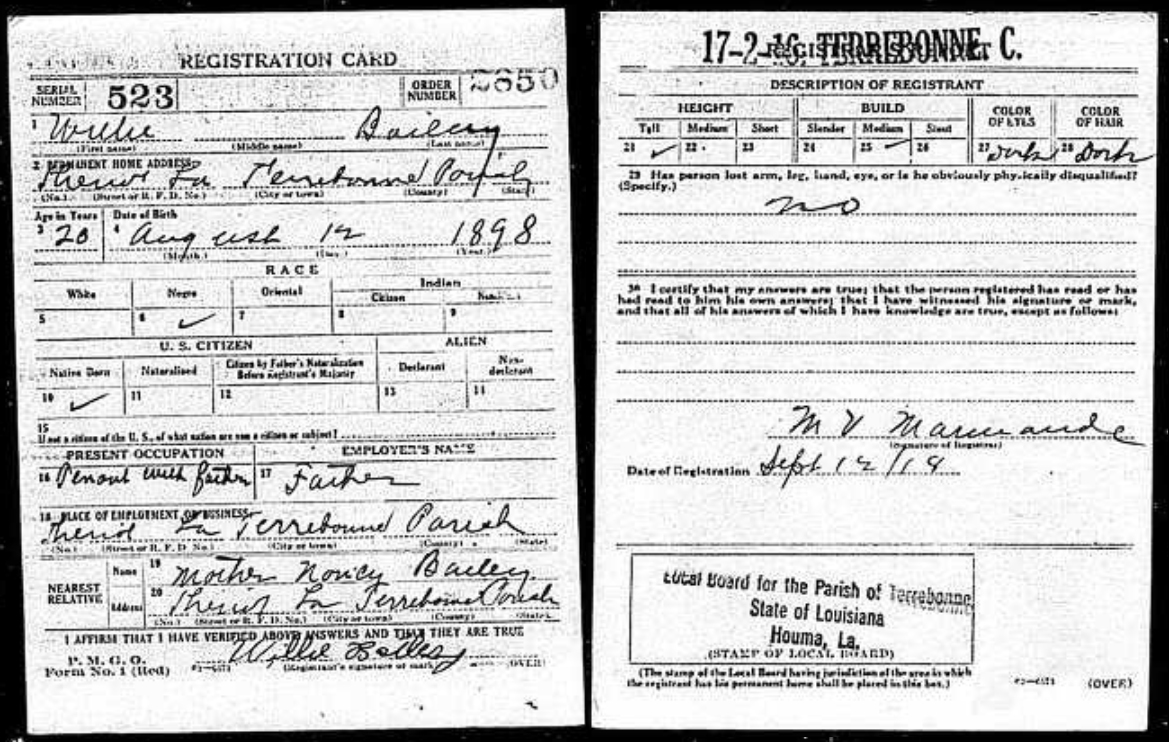 REGISTRATION CARD
SERIAL NUMBER 523 ORDER NUMBER 2650
1 Willie Bailey
(First name) (Middle name) (Last name)
2 PERMANENT HOME ADDRESS
Theriot La Terrebonne Parish
(No.) (Street or R. F. D. No.) (City or town) (County) (State)
Age in Years Date of Birth
3 20 4 August 12 1898
(Month.) (Day.) (Year.)
RACE
White Negro Oriental Indian
Citizen
5 6 ✓ 7 8 9
U. S. CITIZEN ALIEN
Native Born Naturalized Citizen by Father's Naturalization Before Registrant's Majority Declarant Non-declarant
10 ✓ 11 12 13 14
15
If not a citizen of the U. S., of what nation are you a citizen or subject?
PRESENT OCCUPATION EMPLOYER'S NAME
16 Tenant with father 17 Father
18 PLACE OF EMPLOYMENT OR BUSINESS
Theriot La Terrebonne Parish
(No.) (Street or R. F. D. No.) (City or town) (County) (State)
NEAREST RELATIVE Name 19 Mother Nancy Bailey
Address 20 Theriot La Terrebonne Parish
(No.) (Street or R. F. D. No.) (City or town) (County) (State)
I AFFIRM THAT I HAVE VERIFIED ABOVE ANSWERS AND THAT THEY ARE TRUE
P. M. G. O.
Form No. 1 (Red) Willie Bailey
(Registrant's signature or mark) (OVER)
17-2-16. TERREBONNE C.
REGISTRAR'S REPORT
DESCRIPTION OF REGISTRANT
HEIGHT BUILD COLOR OF EYES COLOR OF HAIR
Tall Medium Short Slender Medium Stout
21 ✓ 22 23 24 25 ✓ 26 27 Dark 28 Dark
29 Has person lost arm, leg, hand, eye, or is he obviously physically disqualified?
(Specify.)
no
30 I certify that my answers are true; that the person registered has read or has
had read to him his own answers; that I have witnessed his signature or mark,
and that all of his answers of which I have knowledge are true, except as follows:
M V Marmande
(Signature of Registrar)
Date of Registration Sept 12 / 18
Local Board for the Parish of Terrebonne
State of Louisiana
Houma, La.
(STAMP OF LOCAL BOARD)
(The stamp of the Local Board having jurisdiction of the area in which
the registrant has his permanent home shall be placed in this box.)
(OVER)